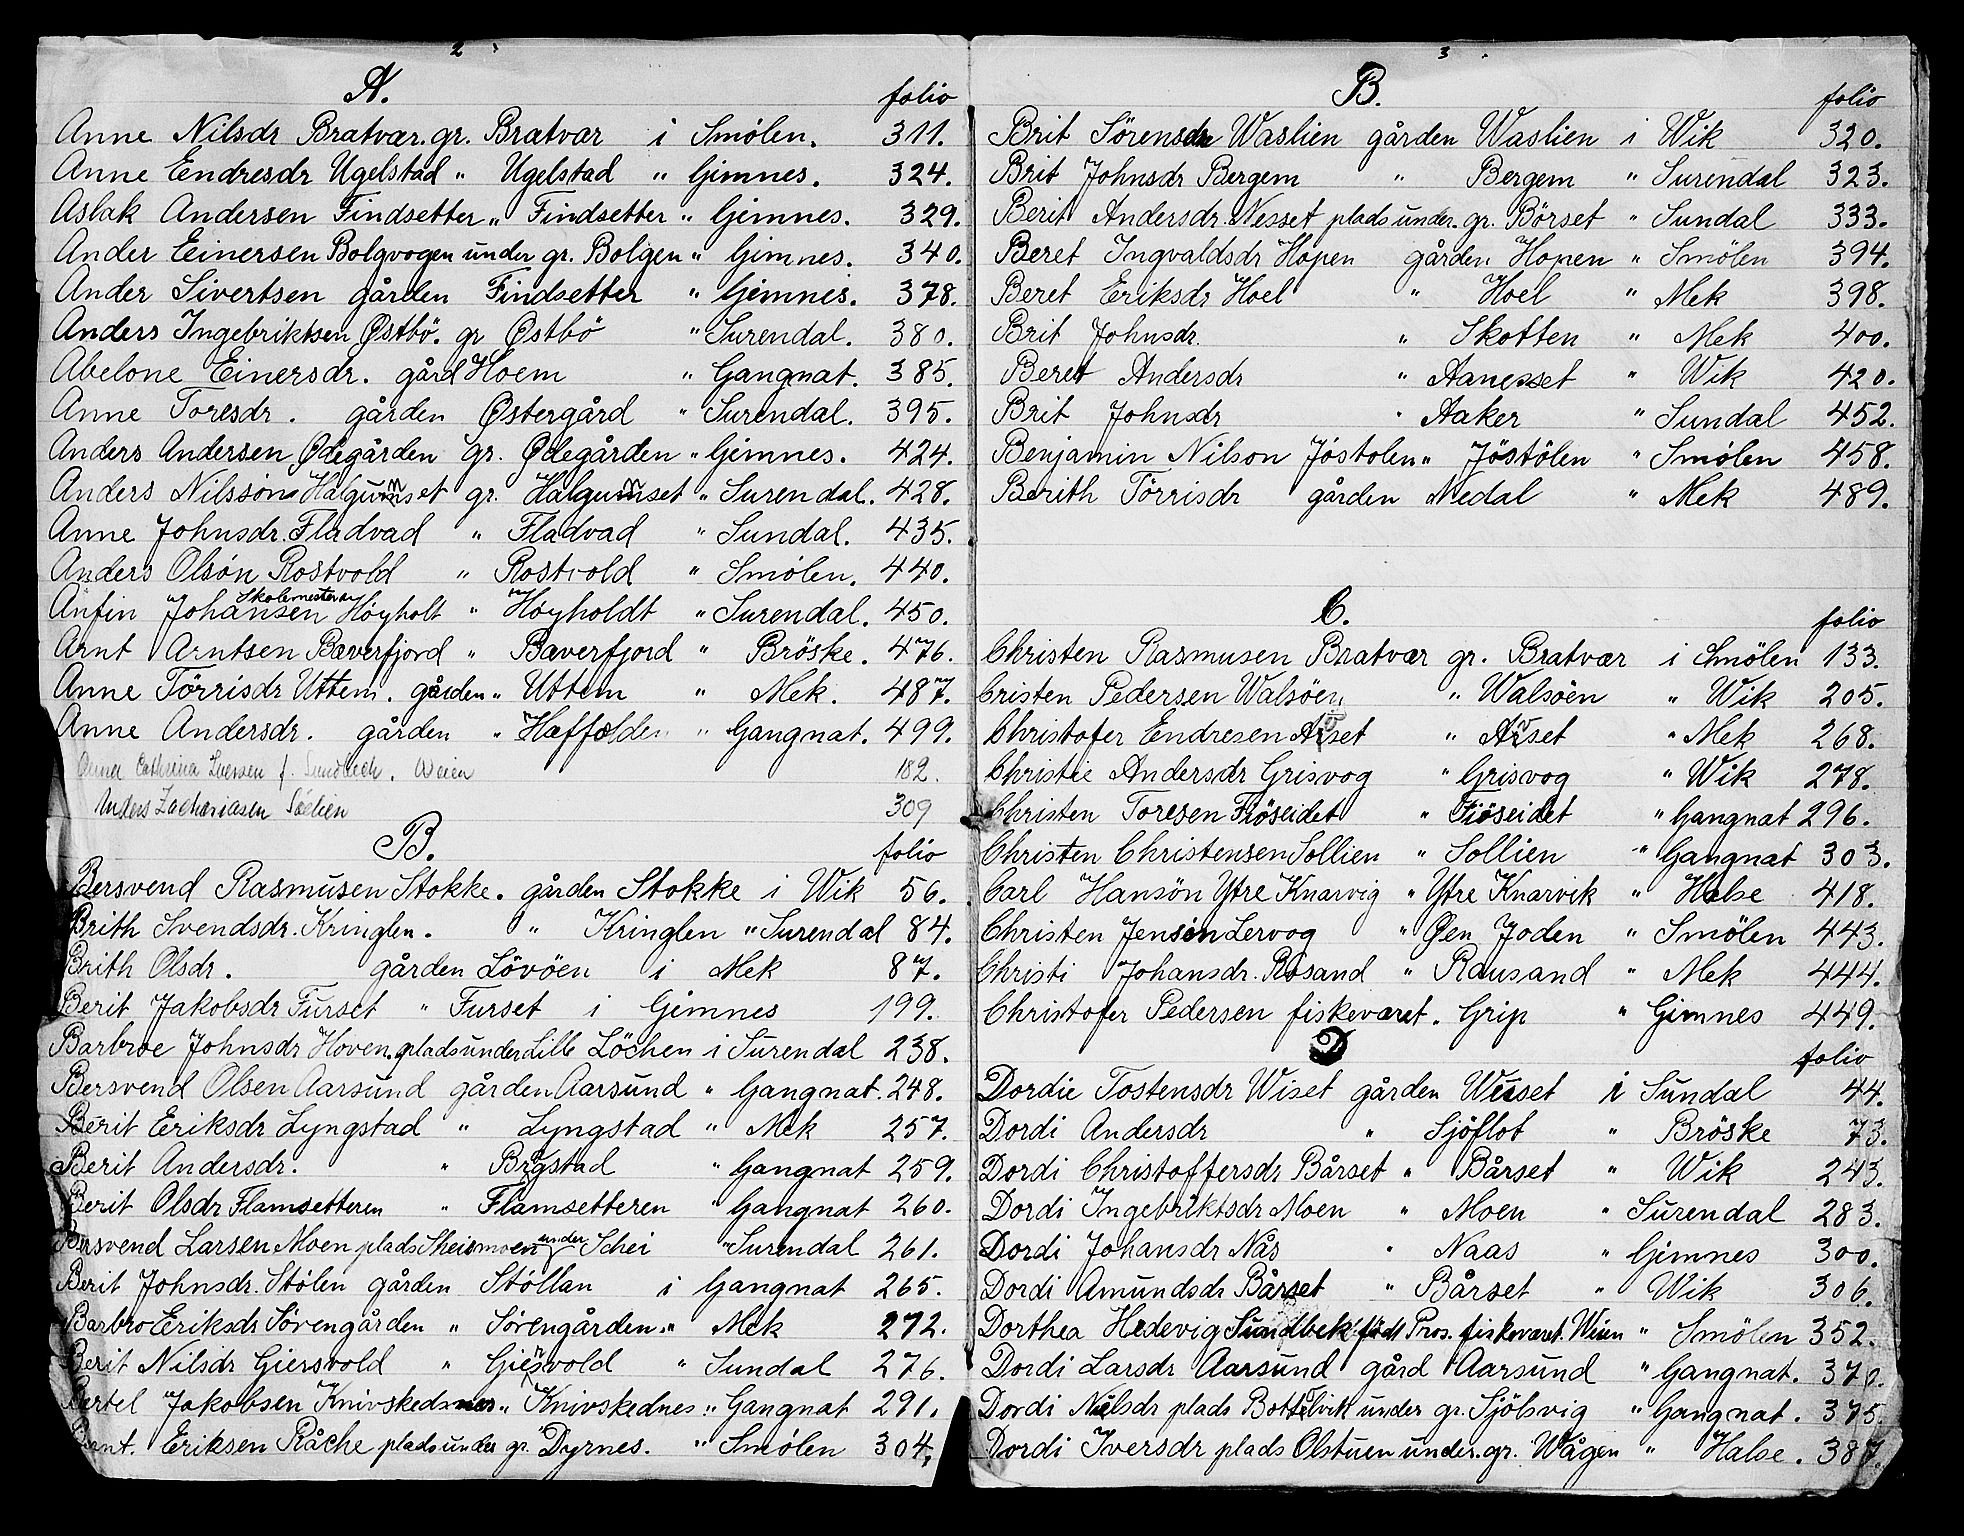 2
A.
folio
Anne Nilsdr Bratvær. gr. Bratvar i Smølen. 311.
Anne Endresdr Ugelstad " Ugelstad " Gimnes. 324.
Aslak Andersen Findsetter " Findsetter " Gimnes. 329.
Ander Einersen Bolgvogen under gr. Bolgen " Gimnes. 340.
Ander Sivertsen gården Findsetter " Gimnes. 378.
Anders Ingebriktsen Østbö. gr Østbö " Surendal. 380.
Abelone Einersdr. gård Hoem " Gangnat. 385.
Anne Toresdr. gården Østergård " Surendal. 395.
Anders Andersen Ødegården gr. Ødegården " Gimnes. 424.
Anders Nilssøn Halgunset gr. Halgunset " Surendal. 428.
Anne Johnsdr. Fladvad " Fladvad " Sundal. 435.
Anders Olsøn Rostvold " Rostvold " Smølen. 440.
Anfin Johansen Skolemester Høyholt " Høyholdt " Surendal. 450.
Arnt Arntsen Bæverfjord " Bæverfjord " Bröske. 476.
Anne Törrisdr Uttem. gården " Uttem " Mek. 487.
Anne Andersdr. gården " Haffolden " Gangnat. 499.
Anna Cathrina f. Sundbech. Weien 182.
Anders Zachariasen 309
B.
folio
Bersvend Rasmusen Stokke. gården Stokke i Wik 56.
Brith Svendsdr. Kringlen. " Kringlen " Surendal 84.
Brith Olsdr. gården Lövöen i Mek 87.
Berit Jakobsdr Furset " Furset i Gimnes 199.
Barbroe Johnsdr Hoven. plads under Lille Löchen i Surendal 238.
Bersvend Olsen Aarsund gården Aarsund " Gangnat. 248.
Berit Eriksdr Lyngstad " Lyngstad " Mek 257.
Berit Andersdr. " Bögstad " Gangnat 259.
Berit Olsdr Flamsetteren " Flamsetteren " Gangnat 260.
Bersvend Larsen Moen plads Skeismoen under Schei " Surendal 261.
Berit Johnsdr. Stölen gården Støllan i Gangnat 265.
Barbro Eriksdr Sörengården " Sörengården " Mek 272.
Berit Nilsdr Giersvold " Giersvold " Sundal 276.
Bertel Jakobsen Knivskednes " Knivskednes " Gangnat 291.
Bent. Eriksen Råche plads under gr. Dyrnes. " Smølen 304.
3
B.
folio
Brit Sörensdr Waslien gården Waslien i Wik 320.
Brit Johnsdr Bergem " Bergem " Surendal 323.
Berit Andersdr. Nesset plads under. gr. Börset " Sundal 333.
Beret Ingvaldsdr Hopen gården Hopen " Smølen 394.
Beret Eriksdr Hoel " Hoel " Mek 398.
Brit Johnsdr. " Skotten " Mek 400.
Beret Andersdr " Aanesset " Wik 420.
Brit Johnsdr " Aaker " Sundal 452.
Benjamin Nilson Jöstolen " Jöstölen " Smølen 458.
Berith Törrisdr gården Nedal " Mek 489.
C.
folio
Christen Rasmusen Bratvær gr. Bratvær i Smølen 133.
Cristen Pedersen Walsöen " Walsöen " Wik 205.
Christofer Endresen Arset " Arset " Mek 268.
Christie Andersdr Grisvog " Grisvog " Wik 278.
Christen Toresen Fiöseidet " Fiöseidet " Gangnat 296.
Christen Christensen Sollien " Sollien " Gangnat 303.
Carl Hansön Ytre Knarvig " Ytre Knarvik " Halse 418.
Christen Jensön Lervog " Øen Joden " Smølen 443.
Christi Johansdr. Rosand " Rausand " Mek 444.
Christofer Pedersen fiskeværet. Grip " Gimnes 449.
D
folio
Dordie Tostensdr Wiset gården Wiset i Sundal 44.
Dordi Andersdr " Sjöflot " Bröske 73.
Dordi Christoffersdr Bårset " Bårset " Wik 243.
Dordi Ingebriktsdr Moen " Moen " Surendal 283.
Dordi Johansdr Nås " Naas " Gimnes 300.
Dordi Amundsdr Bårset " Bårset " Wik 306.
Dorthea Hedevig Sundbek födt Pros. fiskeværet. Weien " Smølen 352.
Dordi Larsdr Aarsund gård Aarsund " Gangnat. 370.
Dordi Nielsdr plads Bottelvik under gr. Sjölsvig " Gangnat. 375.
Dordi Iversdr plads Olstuen under. gr. Wågen " Halse. 387.